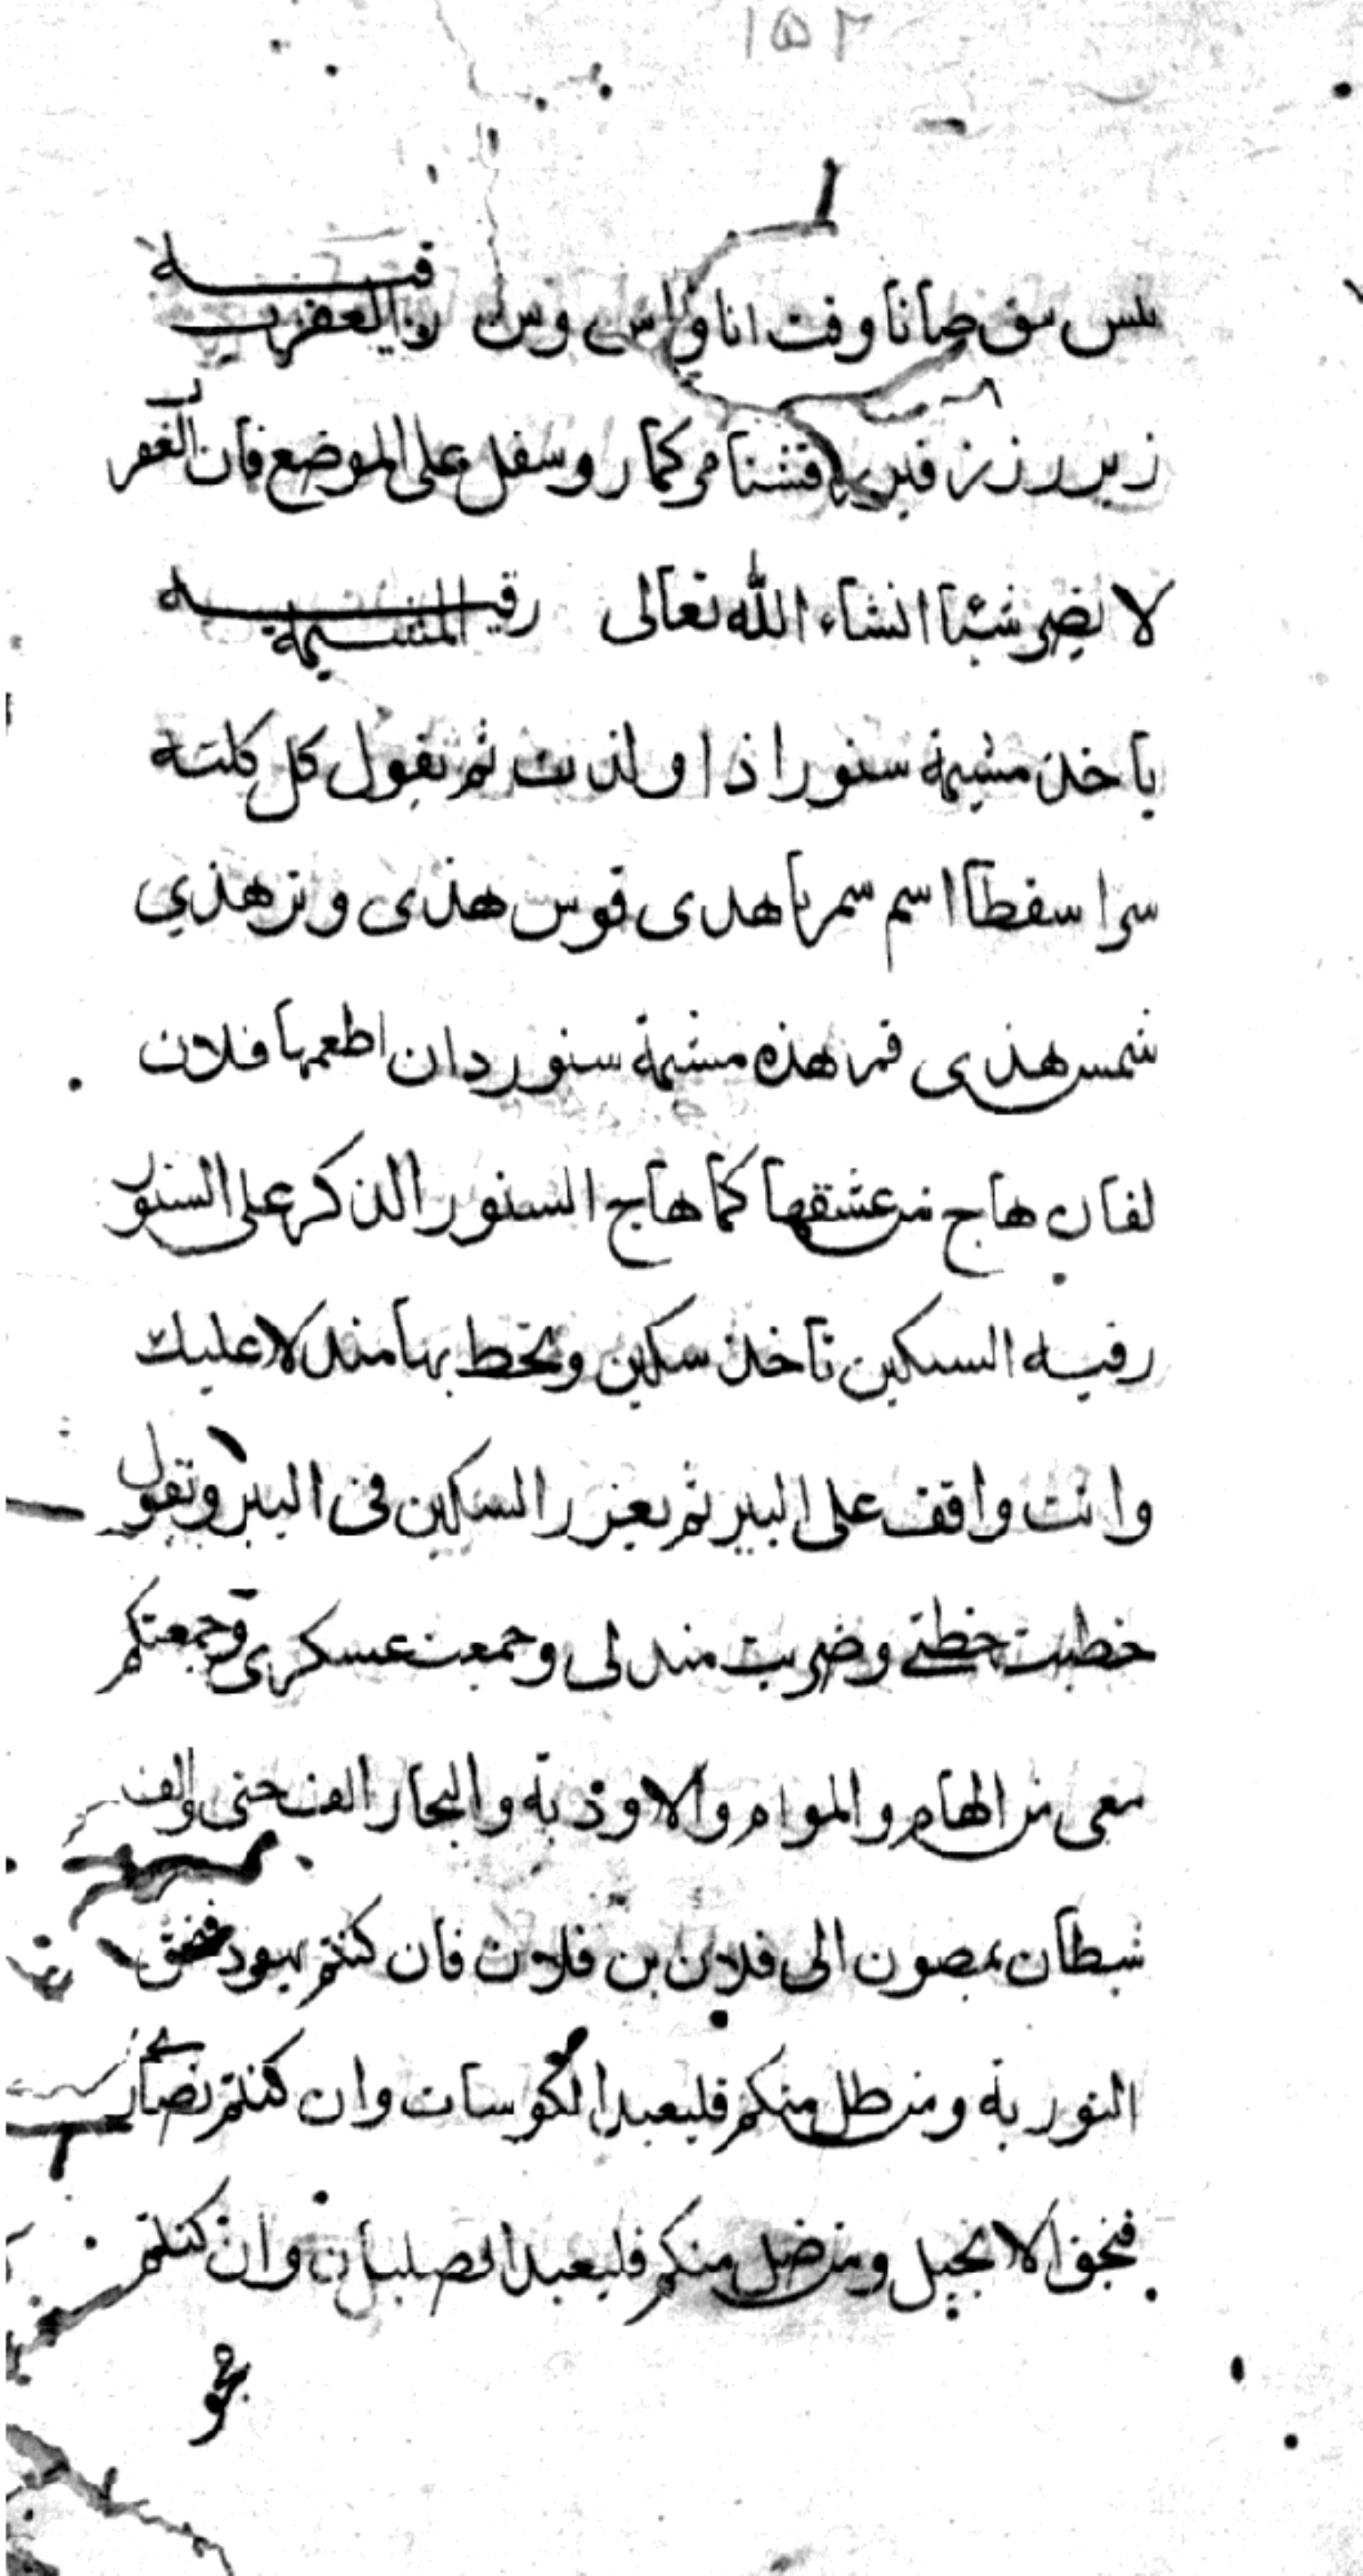 ١٥٢
صانا وقت انا رقية العقرب
على الموضع فان العقر
لا يضر شيئا انشاء الله تعالى رقيه المشيمة
ياخذ مشيمة سنور اذا ولدت ثم تقول كل كلته
سرا سفطا اسم سمرنا هدى قوس هذى وتر هذي
شمس هذى قمر هذه مشيمة سنور دان اطعمها فلان
لفان هاج من عشقها كما هاج السنور الذكر على السنور
رقيه السكين تاخذ سكين وتخط بها مندلا عليك
وانت واقف على البير ثم يغزر السكين فى البير وتقول
خطيت خطتي وضربت مندلى وجمعت عسكرى وجمعتكم
معى من الهام والموام والاوذية والبحار الف جنى والف
شيطان يمضون الى فلان بن فلان فان كنتم يهود فبحق
التورية ومن ظل منكم فليعبد وان كنتم نصارى
فبحق الانجيل ومن ضل منكم فليعبد الصلبان وان كنتم